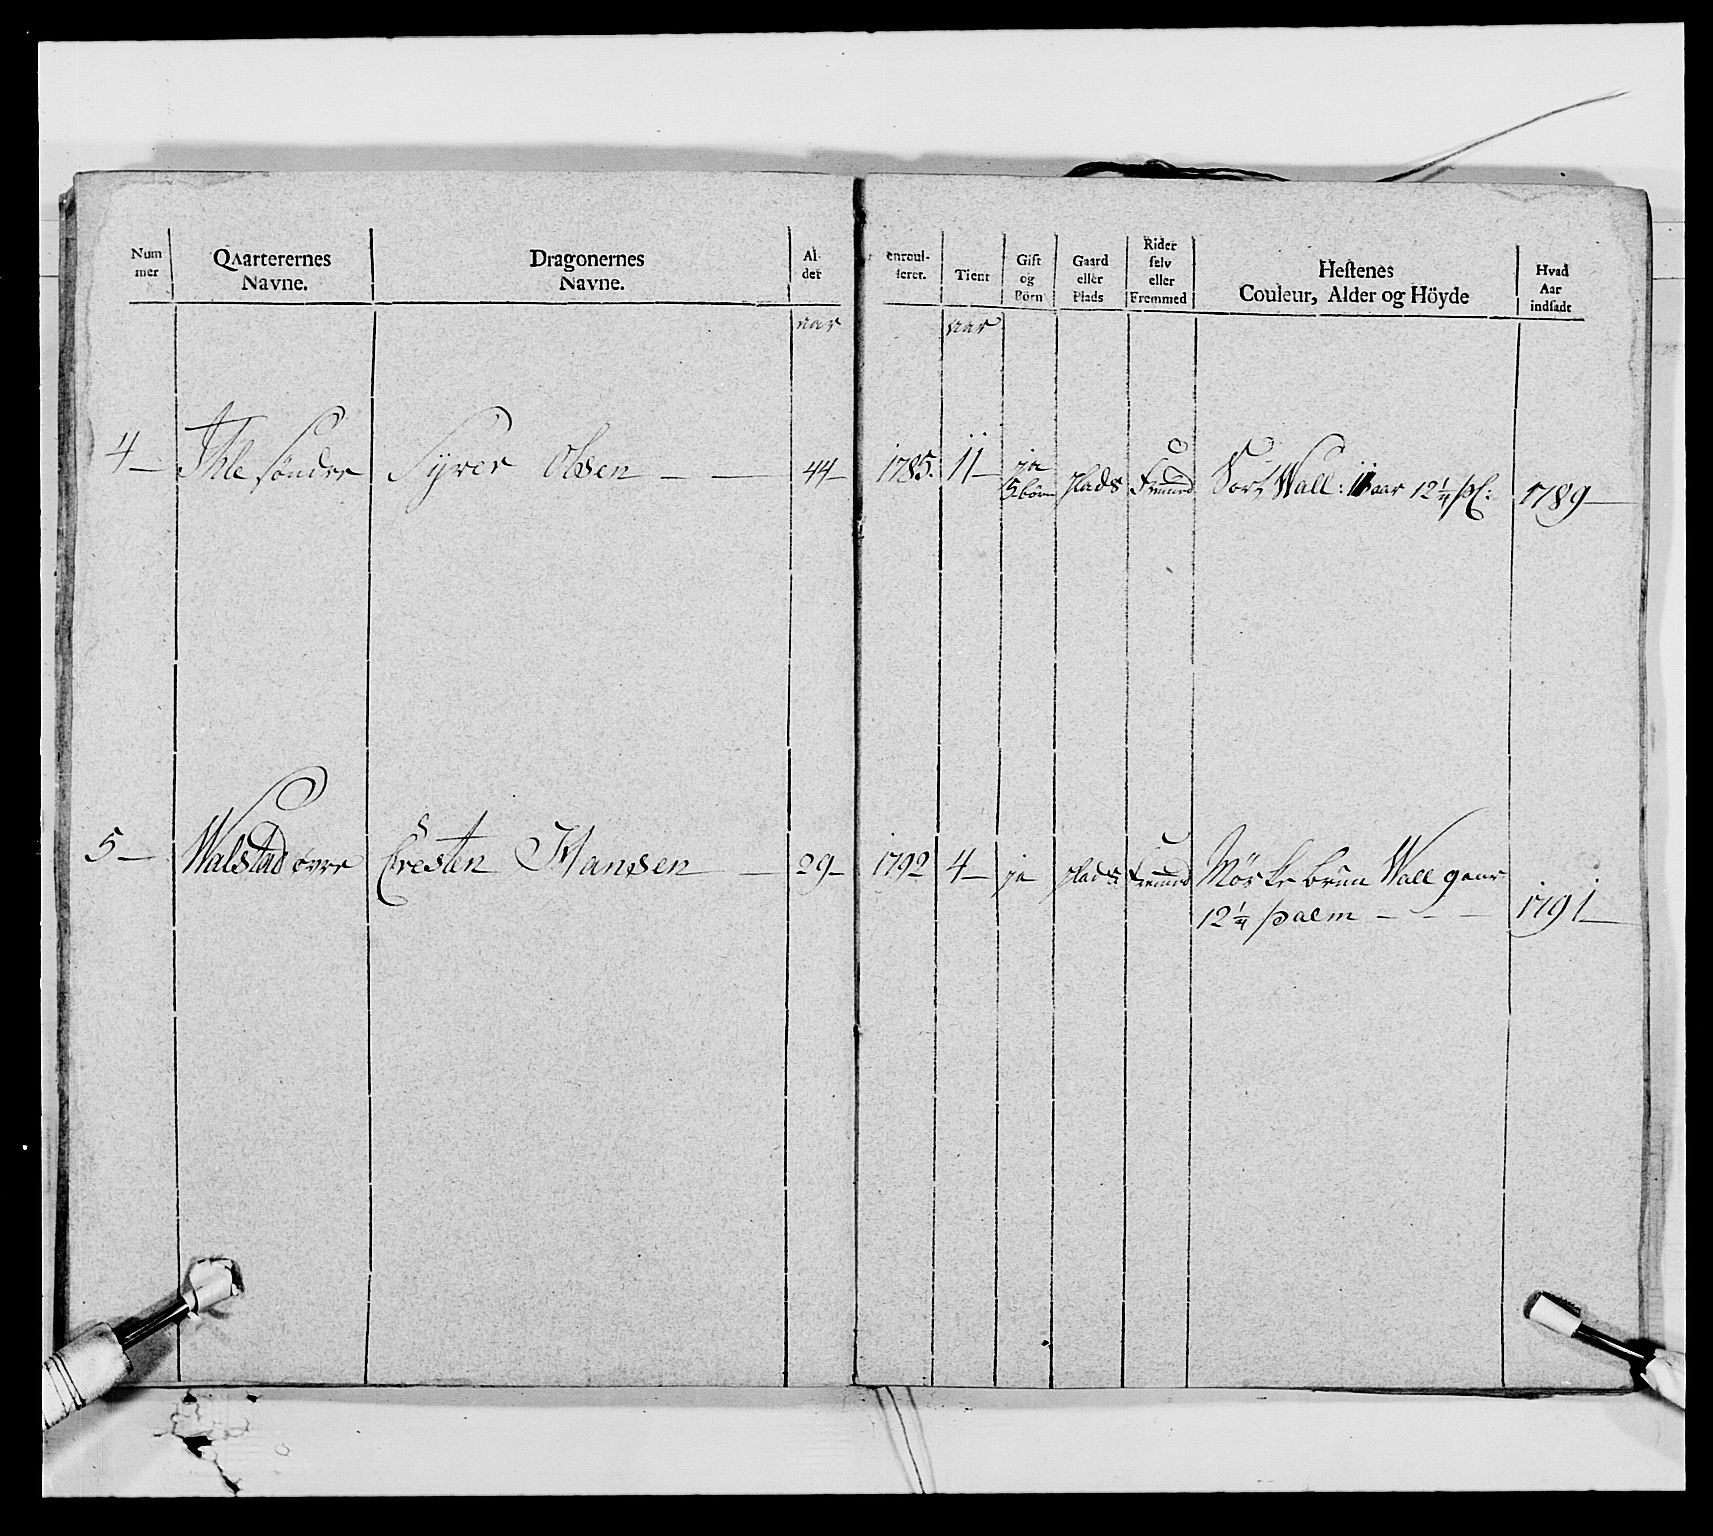 Num mer
Qvarterernes Navne.
Dragonernes Navne.
Al. der
enroul- leret.
Tient
Gift og Börn
Gaard eller Plads
Rider selv eller Fremmed
Hestenes Couleur, Alder og Höyde
Hvad Aar indsadt
aar
aar
4 — Ihle søndre Syver Olsen — — 44 — 1785. 11 — ja 5 børn plads Fremed Sort Wall: 11 aar 12 1/4 pl: 1789 —
5 — Walstad øvre Cresten Hansen — 29 — 1792 4 — ja plads Fremed Mørkebrun Wall 9 aar
12 1/4 palm — — — 1791 —